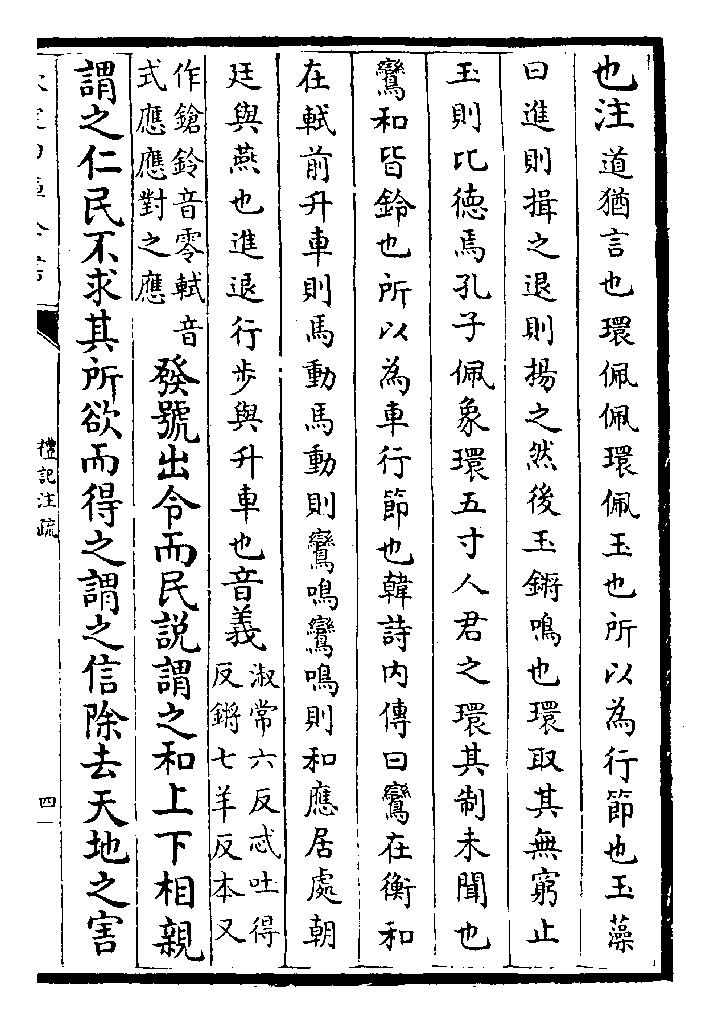 也注道猶言也環佩佩環佩玉也所以為行節也玉藻
曰進則揖之退則揚之然後玉鏘鳴也環取其無窮止
玉則比德焉孔子佩象環五寸人君之環其制未聞也
鸞和皆鈴也所以為車行節也韓詩内傳曰鸞在衡和
在軾前升車則馬動馬動則鸞鳴鸞鳴則和應居處朝
廷與燕也進退行步與升車也音義淑常六反忒吐得
反鏘七羊反本又
作鎗鈴音零軾音
式應應對之應
發號出令而民説謂之和上下相親
謂之仁民不求其所欲而得之謂之信除去天地之害
禮記注疏
四